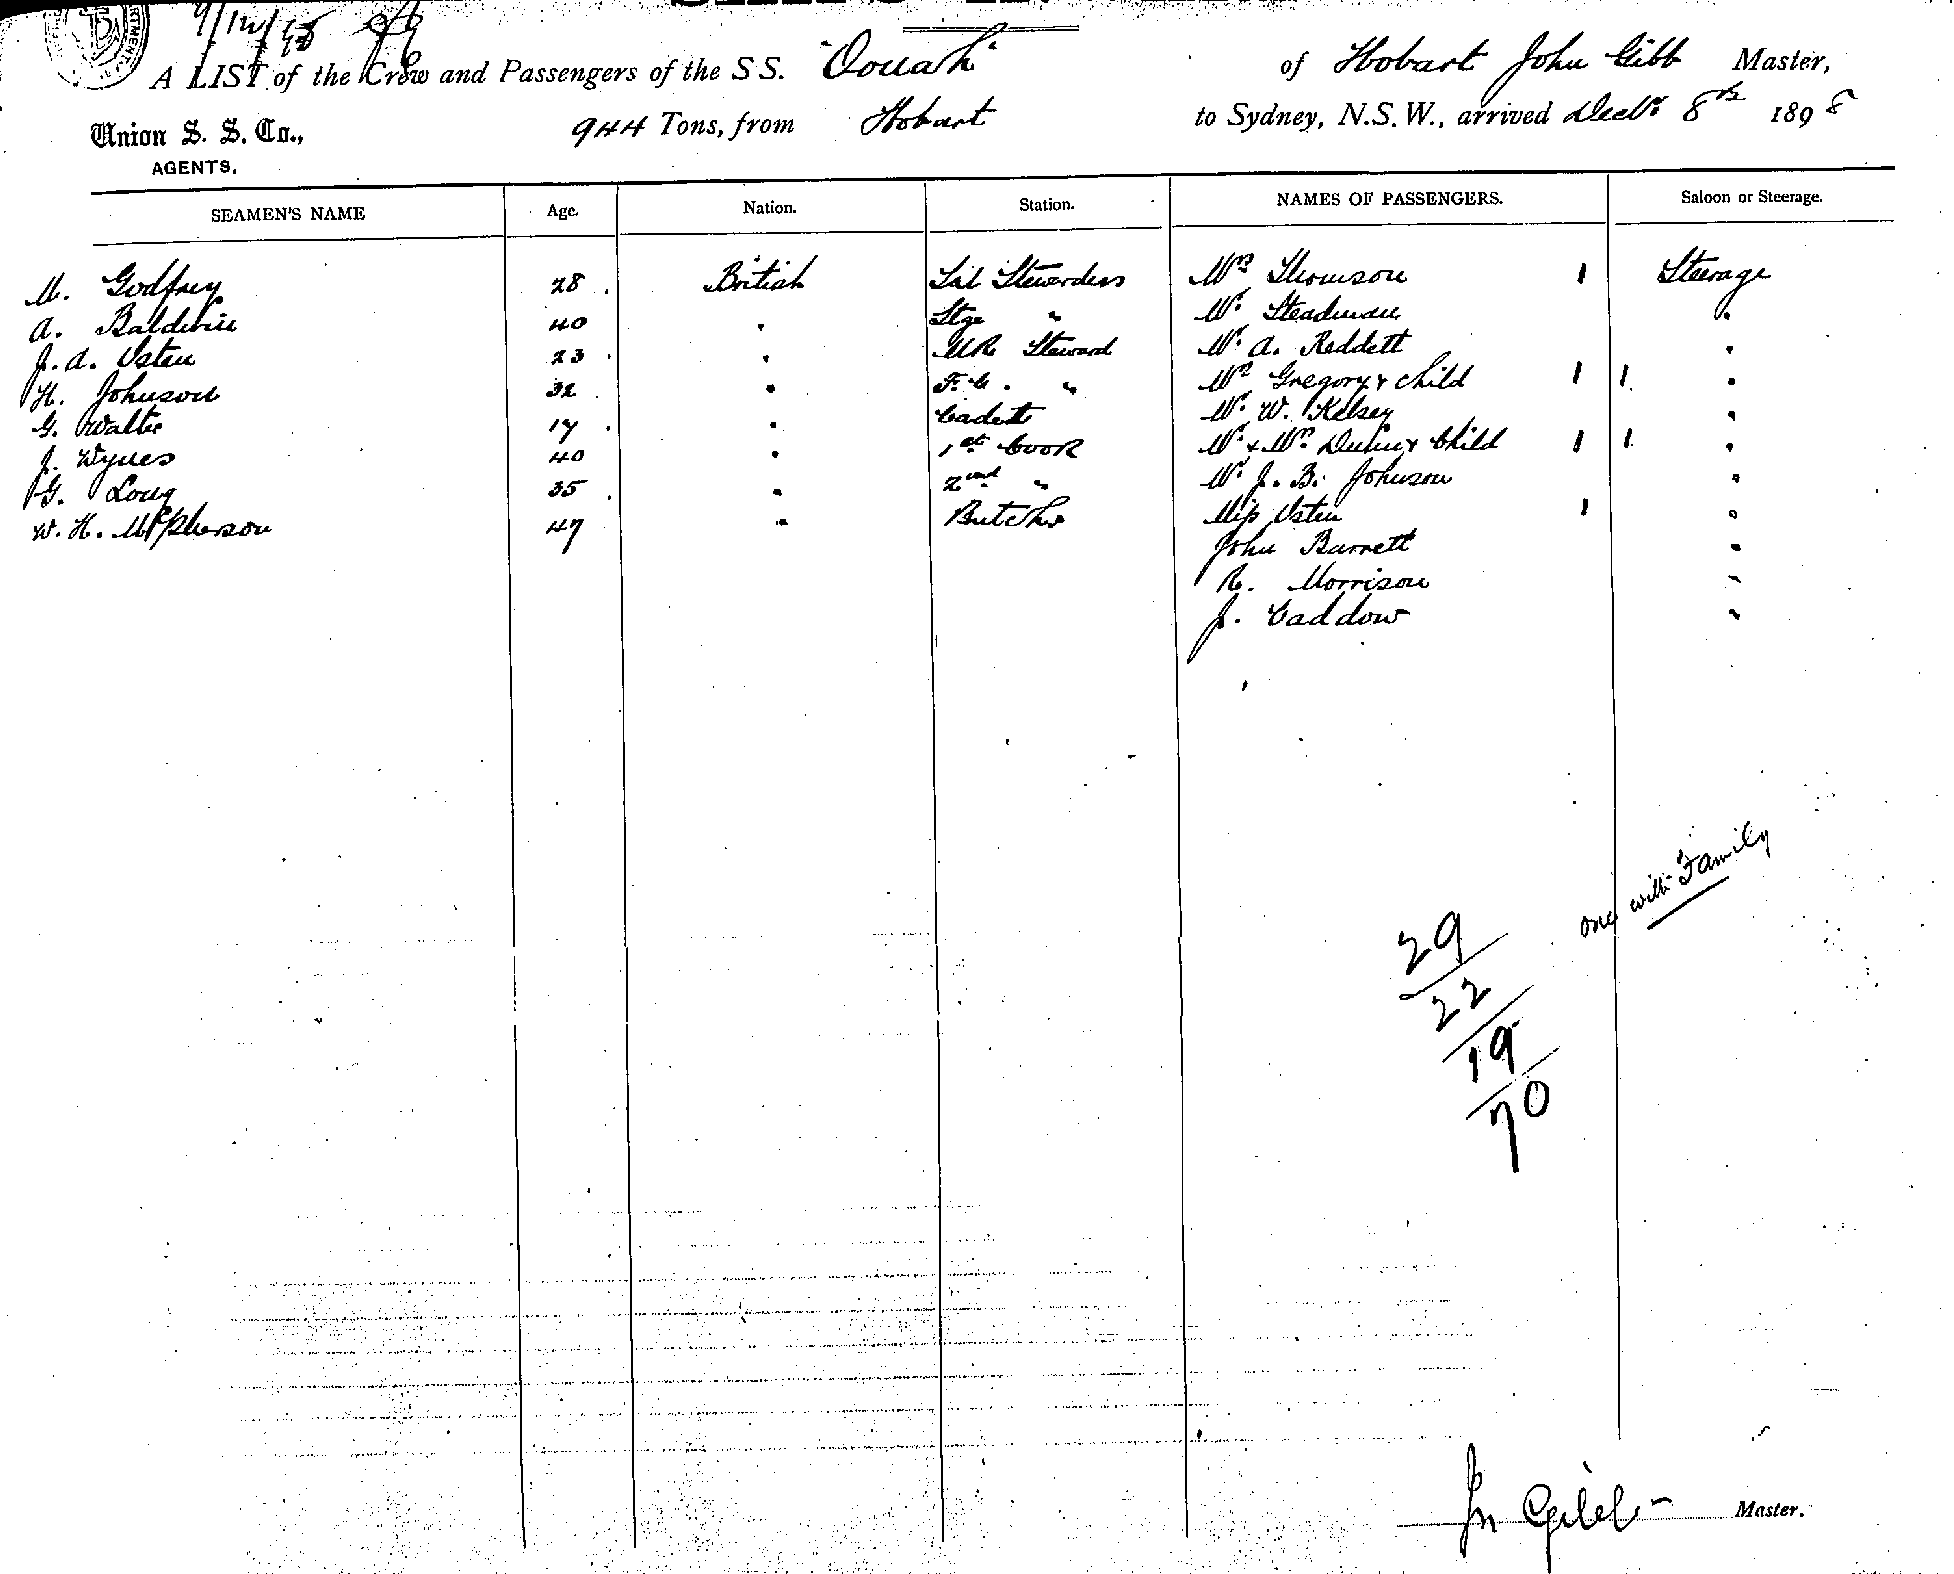 9/12/98
A LIST of the Crew and Passengers of the S S. "Oonah" of Hobart John Gibb Master,
Union S. S. Co., 944 Tons, from Hobart to Sydney, N.S.W., arrived Decbr 8th 1898
AGENTS.
SEAMEN'S NAME Age. Nation. Station. NAMES OF PASSENGERS. Saloon or Steerage.
M. Godfrey 28 British Sal Stewardess Mrs Thomson 1 Steerage
A. Baldwin 40 " Stge " Mr Steadman "
J. A. Usten 23 " MR Steward Mr A. Reddett "
H. Johnson 32 " F. C. " Mrs Gregory & child 1 1 "
G. Walter 17 " Cadet Mr W. Kelsey "
J. Wynes 40 " 1st Cook Mr & Mrs & Child 1 1 "
G. Long 35 " 2nd " Mr J. B. Johnson "
W. H. McPherson 47 " Butcher Miss Usten 1 "
John Barrett "
R. Morrison "
J. Caddow "
one with Family
29
22
19
70
Jn Gibb Master.